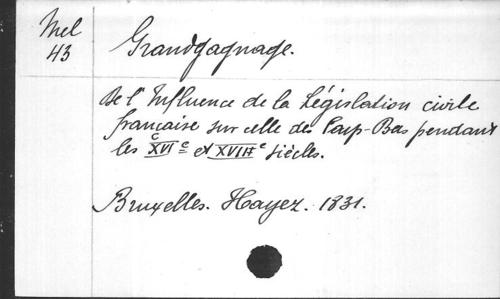 Mel
43
Grandgagnage.
De l'Influence de la Législation civile
française sur celle des Pays-Bas pendant
les XVIe et XVIIe siècles.
Bruxelles. Hayez. 1831.